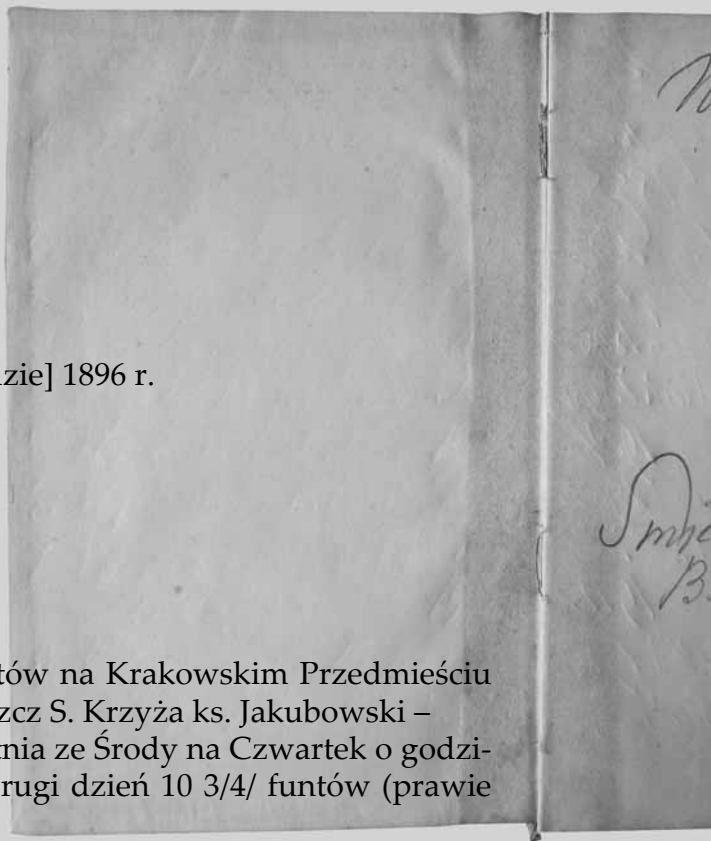 zie] 1896 r.
tów na Krakowskim Przedmieściu
zcz S. Krzyża ks. Jakubowski –
tnia ze Środy na Czwartek o godzi-
rugi dzień 10 3/4/ funtów (prawie